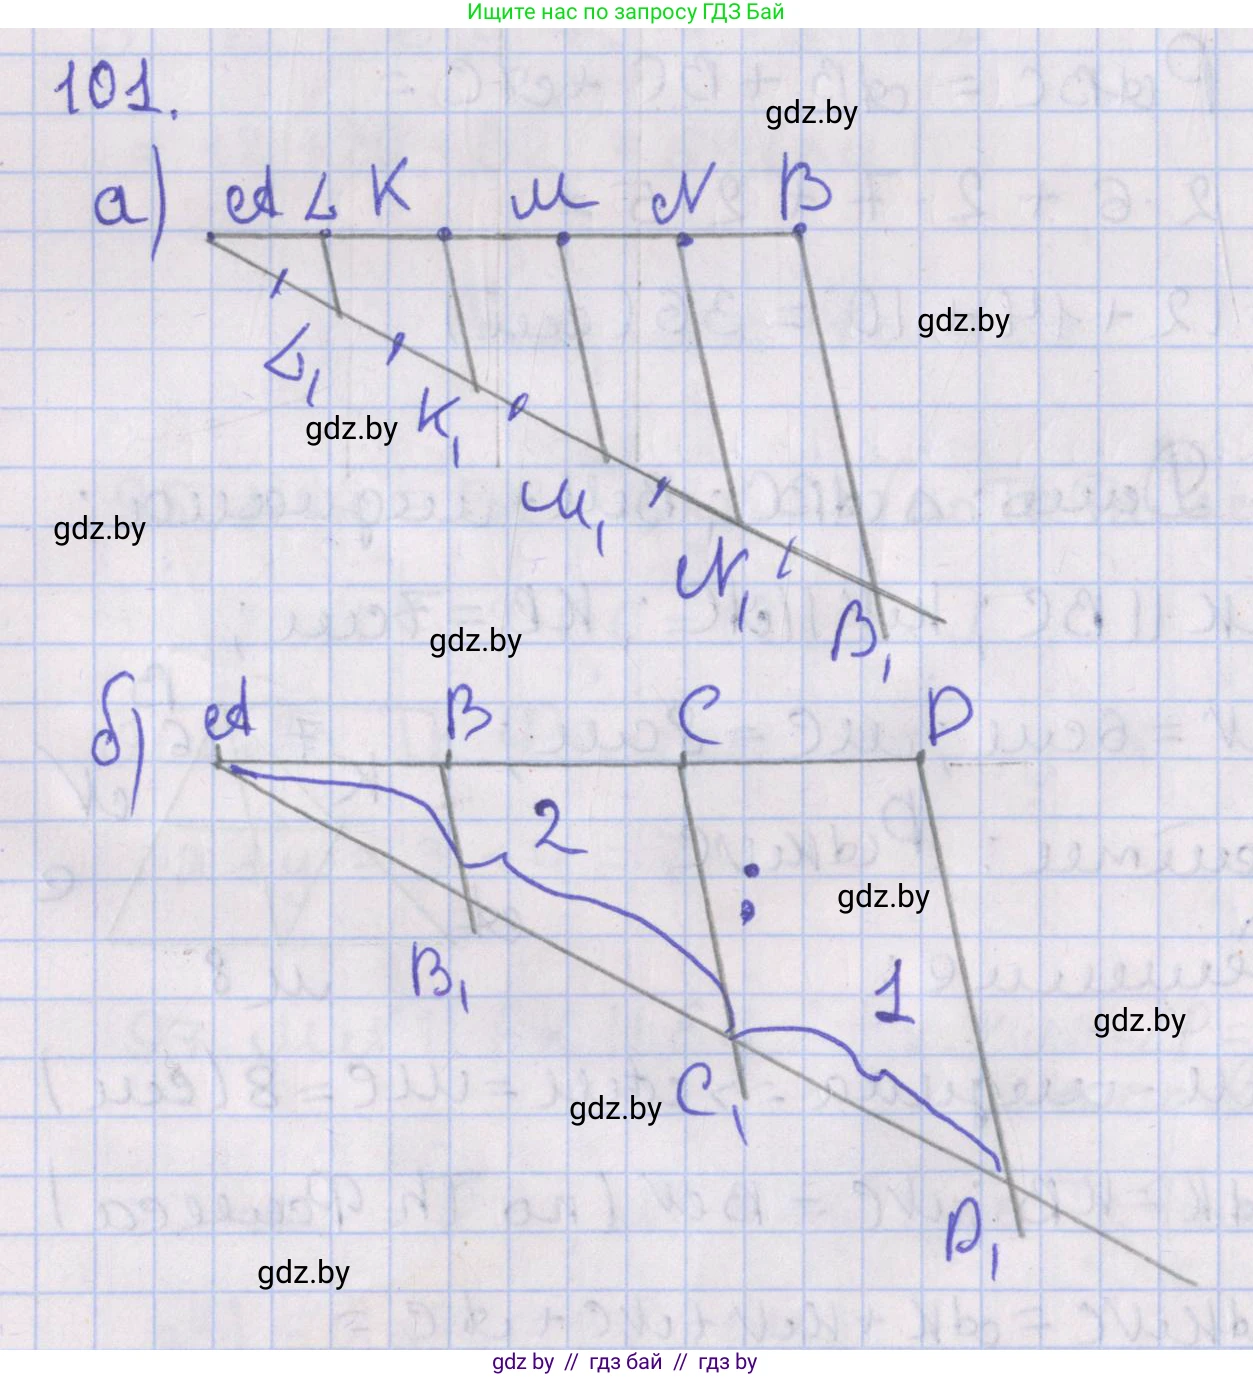 Ищите нас по запросу ГДЗ Бай
101.
gdz.by
а) A L K M N B
gdz.by
L₁
gdz.by K₁
gdz.by M₁
N₁
gdz.by B₁
б) A B C D
2
:
gdz.by
B₁ 1
gdz.by
gdz.by C₁
D₁
gdz.by
gdz by // гдз бай // гдз by